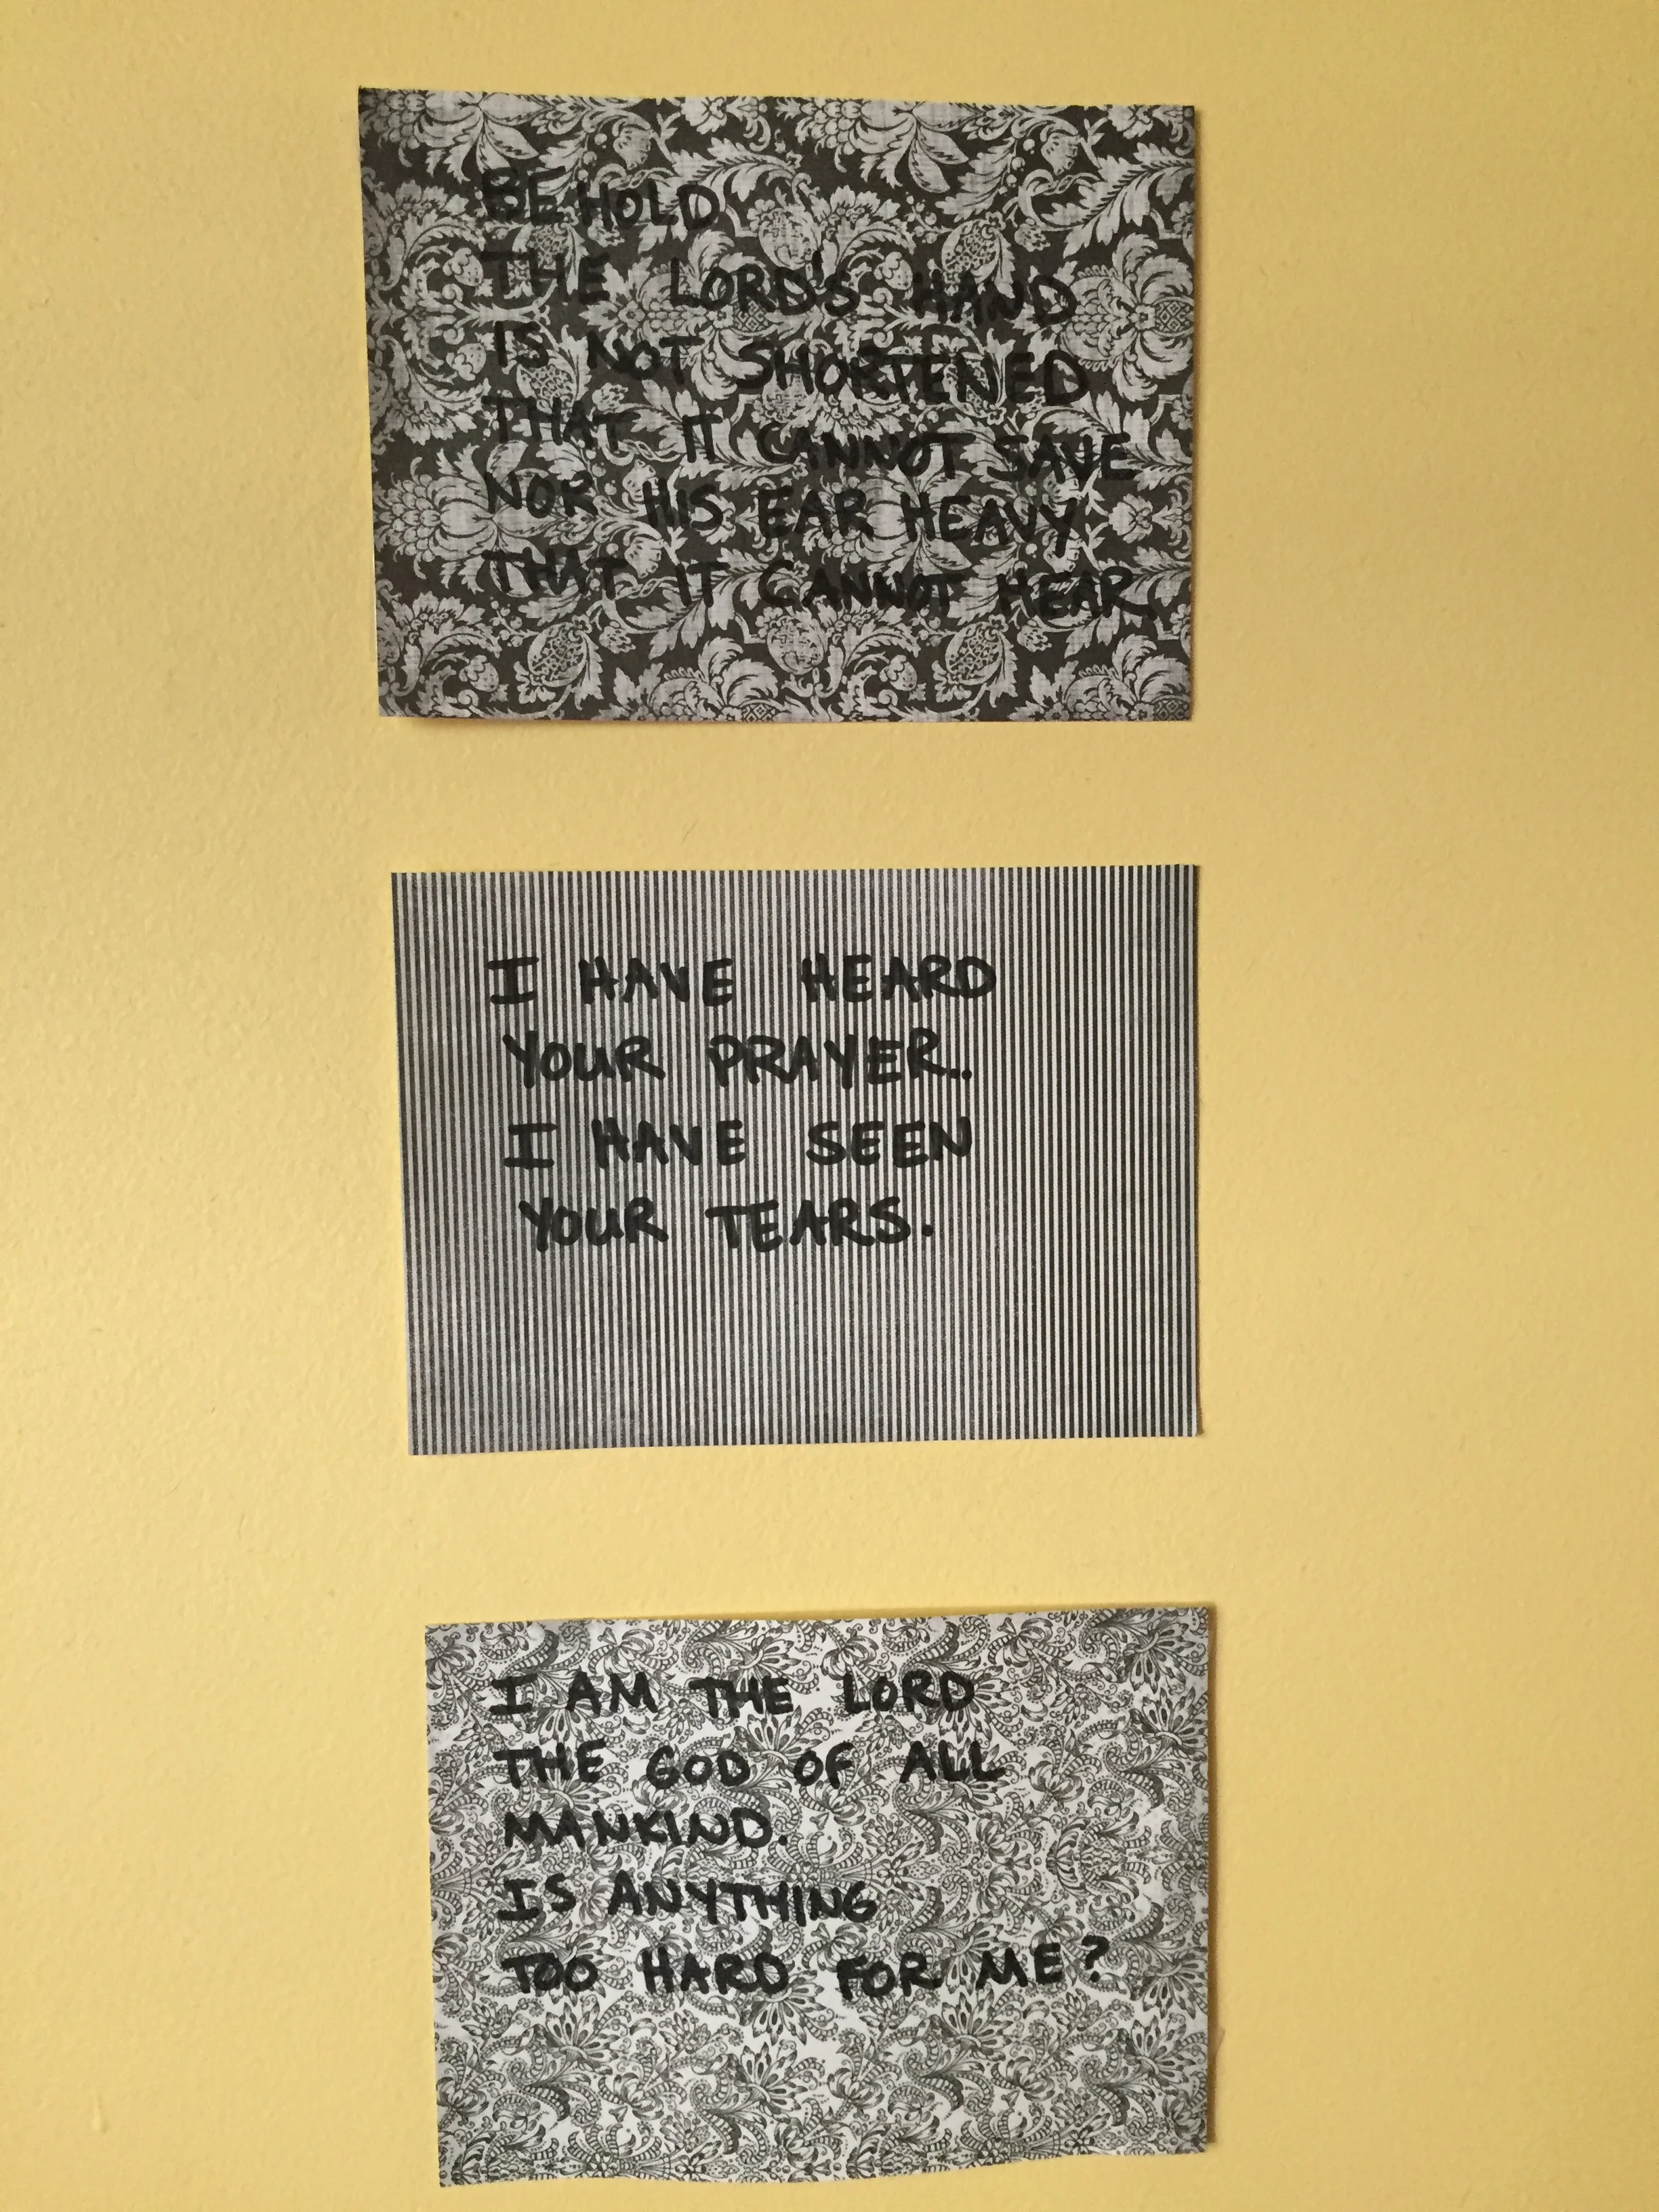 BEHOLD
THE LORD'S HAND
IS NOT SHORTENED
THAT IT CANNOT SAVE
NOR HIS EAR HEAVY
THAT IT CANNOT HEAR
I HAVE HEARD
YOUR PRAYER..
I HAVE SEEN
YOUR TEARS.
I AM THE LORD
THE GOD OF ALL
MANKIND.
IS ANYTHING
TOO HARD FOR ME?